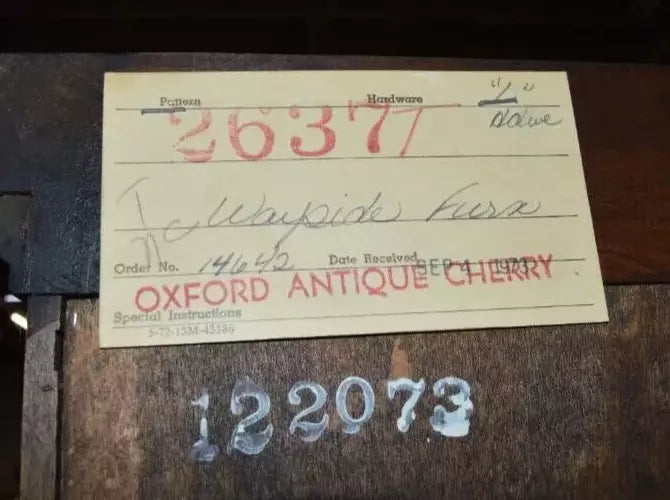 Pattern Hardware "L"
26377 Hdwe
Wayside Furn
Order No. 14642 Date Received SEP 4 1973
OXFORD ANTIQUE CHERRY
Special Instructions
5-72-15M-43586
122073